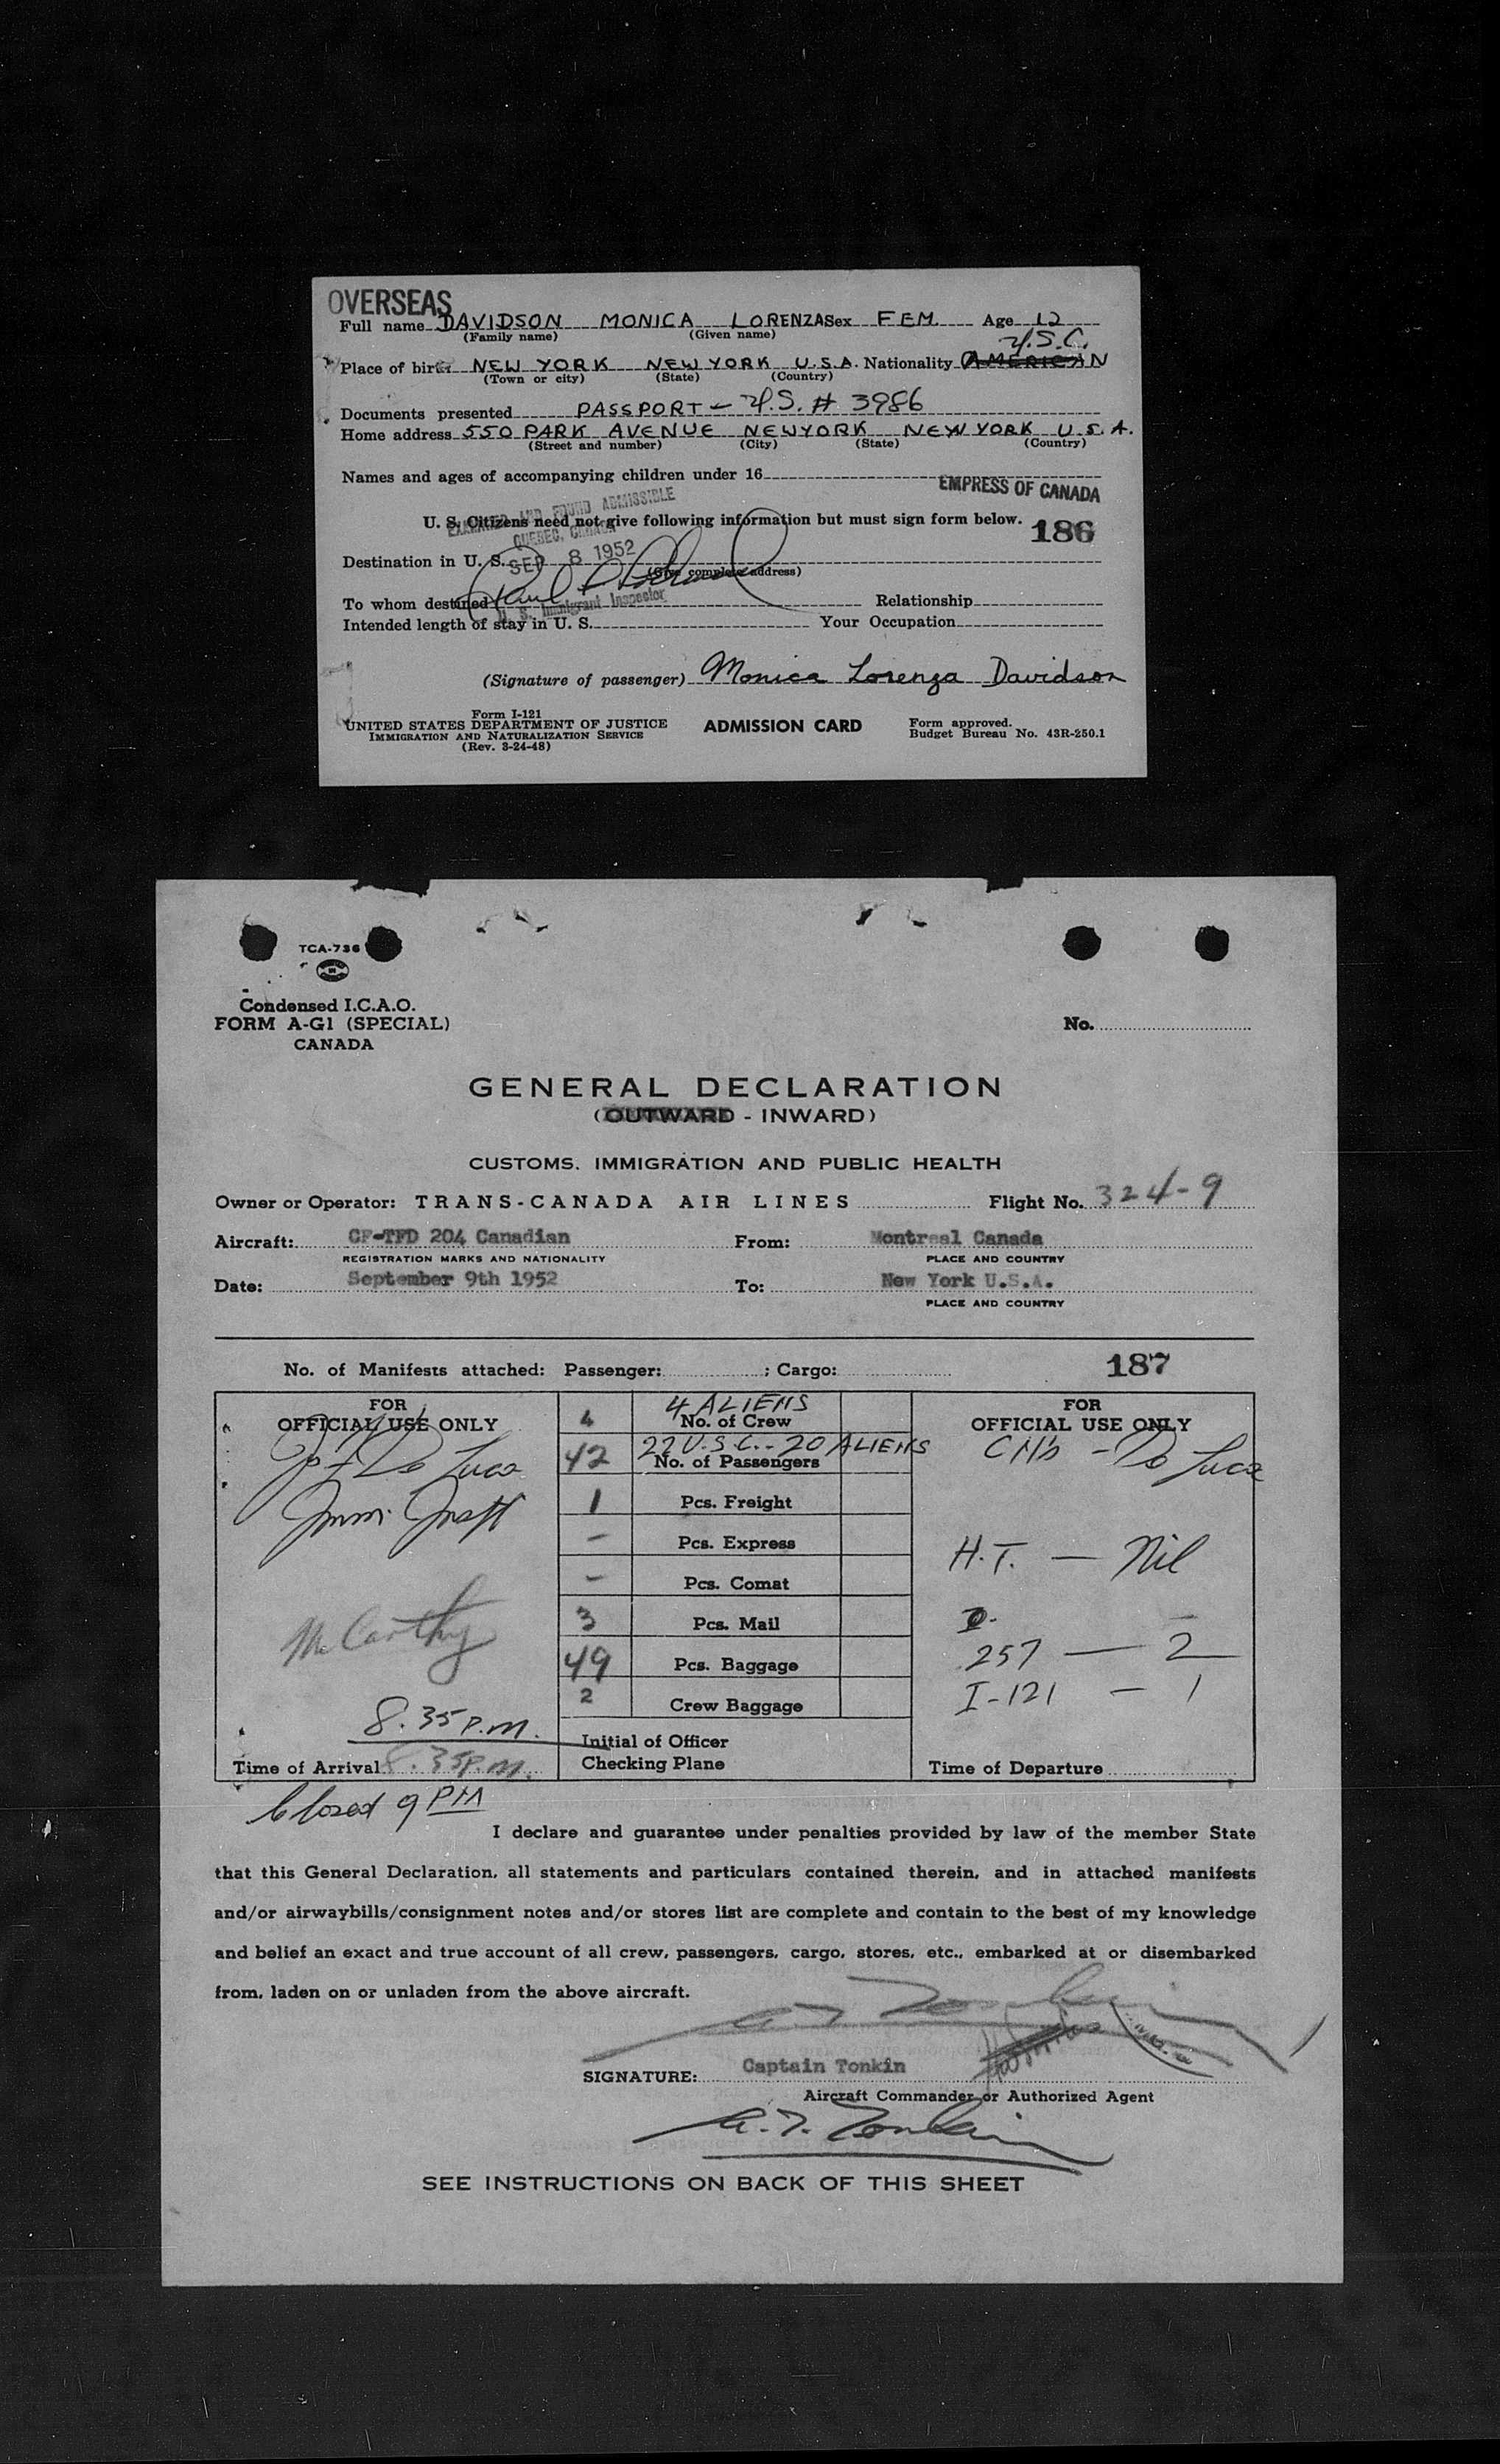 OVERSEAS
Full name DAVIDSON MONICA LORENZA Sex FEM. Age 12
(Family name) (Given name)
U.S.C.
Place of birth NEW YORK NEW YORK U.S.A. Nationality AMERICAN
(Town or city) (State) (Country)
Documents presented PASSPORT - U.S. # 3986
Home address 550 PARK AVENUE NEW YORK NEW YORK U.S.A.
(Street and number) (City) (State) (Country)
Names and ages of accompanying children under 16
EMPRESS OF CANADA
EXAMINED AND FOUND ADMISSIBLE
U. S. Citizens need not give following information but must sign form below.
186
QUEBEC, CANADA
Destination in U. S.
SEP 8 1952
(Give complete address)
To whom destined Relationship
U. S. Immigrant Inspector
Intended length of stay in U. S. Your Occupation
(Signature of passenger) Monica Lorenza Davidson
Form I-121
UNITED STATES DEPARTMENT OF JUSTICE
IMMIGRATION AND NATURALIZATION SERVICE
(Rev. 3-24-48)
ADMISSION CARD
Form approved.
Budget Bureau No. 43R-250.1
TCA-736
Condensed I.C.A.O.
FORM A-G1 (SPECIAL)
CANADA
No.
GENERAL DECLARATION
(OUTWARD - INWARD)
CUSTOMS, IMMIGRATION AND PUBLIC HEALTH
Owner or Operator: TRANS-CANADA AIR LINES Flight No. 324-9
Aircraft: CF-TFD 204 Canadian From: Montreal Canada
REGISTRATION MARKS AND NATIONALITY PLACE AND COUNTRY
Date: September 9th 1952 To: New York U.S.A.
PLACE AND COUNTRY
No. of Manifests attached: Passenger: ; Cargo:
187
FOR
OFFICIAL USE ONLY
De Luca
McCarthy
8.35 P.M.
Time of Arrival 8.35 P.M.
4 4 ALIENS
No. of Crew
42 22 U.S.C. - 20 ALIENS
No. of Passengers
1 Pcs. Freight
- Pcs. Express
- Pcs. Comat
3 Pcs. Mail
49 Pcs. Baggage
2 Crew Baggage
Initial of Officer
Checking Plane
FOR
OFFICIAL USE ONLY
- De Luca
H.T. - Nil
257 - 2
I-121 - 1
Time of Departure
Closed 9 PM
I declare and guarantee under penalties provided by law of the member State
that this General Declaration, all statements and particulars contained therein, and in attached manifests
and/or airwaybills/consignment notes and/or stores list are complete and contain to the best of my knowledge
and belief an exact and true account of all crew, passengers, cargo, stores, etc., embarked at or disembarked
from, laden on or unladen from the above aircraft.
SIGNATURE: Captain Tonkin
Aircraft Commander or Authorized Agent
A.T. Tonkin
SEE INSTRUCTIONS ON BACK OF THIS SHEET